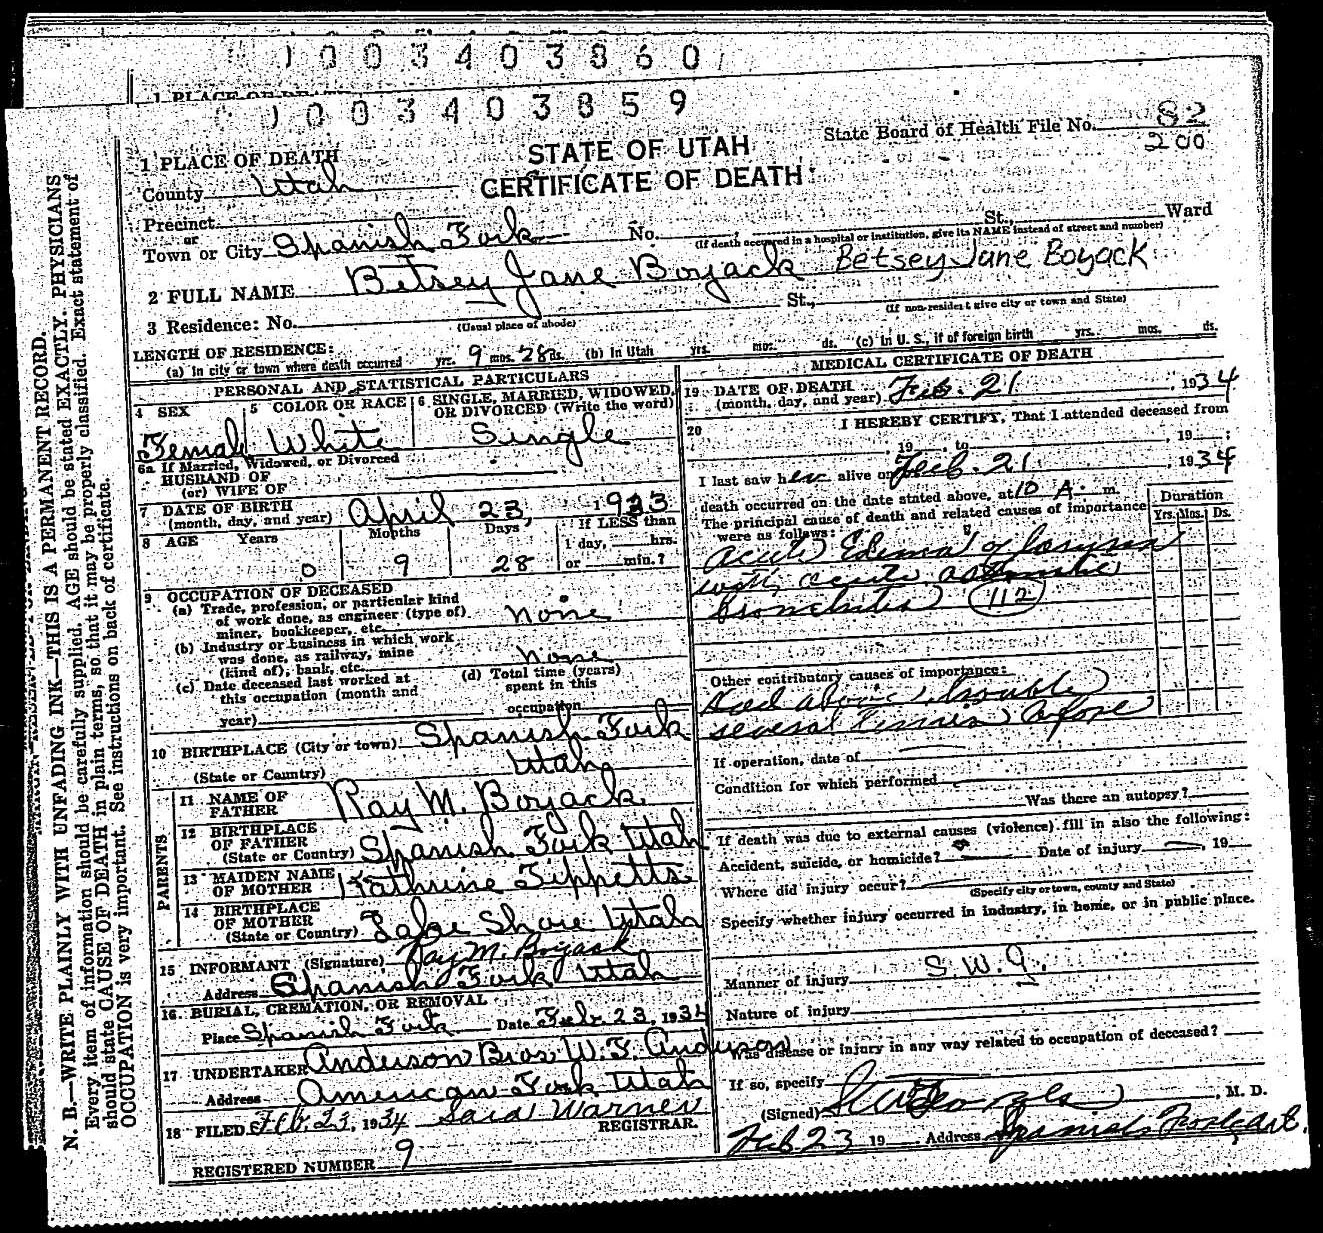 1003403860
1 PLACE OF DEATH
1003403859
State Board of Health File No. 82
200
STATE OF UTAH
CERTIFICATE OF DEATH
1 PLACE OF DEATH
County Utah
Precinct
or
Town or City Spanish Fork No. St., Ward
(If death occurred in a hospital or institution, give its NAME instead of street and number)
2 FULL NAME Betsey Jane Boyack Betsey Jane Boyack
3 Residence: No. St.,
(Usual place of abode) (If non-resident give city or town and State)
LENGTH OF RESIDENCE:
(a) In city or town where death occurred yrs. 9 mos. 28 ds. (b) In Utah yrs. mos. ds. (c) In U. S., if of foreign birth yrs. mos. ds.
PERSONAL AND STATISTICAL PARTICULARS
4 SEX 5 COLOR OR RACE 6 SINGLE, MARRIED, WIDOWED, OR DIVORCED (Write the word)
Female White Single
6a If Married, Widowed, or Divorced
HUSBAND OF
(or) WIFE OF
7 DATE OF BIRTH
(month, day, and year) April 23, 1933
8 AGE Years Months Days If LESS than
1 day, hrs.
0 9 28 or min.?
9 OCCUPATION OF DECEASED
(a) Trade, profession, or particular kind
of work done, as engineer (type of)
miner, bookkeeper, etc. none
(b) Industry or business in which work
was done, as railway, mine
(kind of), bank, etc. none
(c) Date deceased last worked at
this occupation (month and
year)
(d) Total time (years)
spent in this
occupation
10 BIRTHPLACE (City or town) Spanish Fork
(State or Country) Utah
PARENTS
11 NAME OF
FATHER Ray M. Boyack
12 BIRTHPLACE
OF FATHER
(State or Country) Spanish Fork Utah
13 MAIDEN NAME
OF MOTHER Kathrine Tippetts
14 BIRTHPLACE
OF MOTHER
(State or Country) Lake Shore Utah
15 INFORMANT (Signature) Ray M. Boyack
Address Spanish Fork Utah
16 BURIAL, CREMATION, OR REMOVAL
Place Spanish Fork Date Feb. 23, 1934
17 UNDERTAKER Anderson Bros W. F. Anderson
Address American Fork Utah
18 FILED Feb. 23, 1934 Sara Warner
REGISTRAR.
REGISTERED NUMBER 9
MEDICAL CERTIFICATE OF DEATH
19 DATE OF DEATH
(month, day, and year) Feb. 21, 1934
20 I HEREBY CERTIFY, That I attended deceased from
, 19 to , 19 ;
I last saw her alive on Feb. 21, 1934
death occurred on the date stated above, at 10 A. m.
The principal cause of death and related causes of importance
were as follows:
Duration
Yrs. Mos. Ds.
Acute Edema of larynx
with acute asthmatic
bronchitis 112
Other contributory causes of importance:
Had above trouble
several times before
If operation, date of
Condition for which performed
Was there an autopsy?
If death was due to external causes (violence) fill in also the following:
Accident, suicide, or homicide? Date of injury , 19
Where did injury occur?
(Specify city or town, county and State)
Specify whether injury occurred in industry, in home, or in public place.
Manner of injury S. W. G.
Nature of injury
Was disease or injury in any way related to occupation of deceased?
If so, specify
(Signed) , M. D.
Feb. 23 19 Address Spanish Fork
N. B.—WRITE PLAINLY WITH UNFADING INK—THIS IS A PERMANENT RECORD.
Every item of information should be carefully supplied. AGE should be stated EXACTLY. PHYSICIANS
should state CAUSE OF DEATH in plain terms, so that it may be properly classified. Exact statement of
OCCUPATION is very important. See instructions on back of certificate.